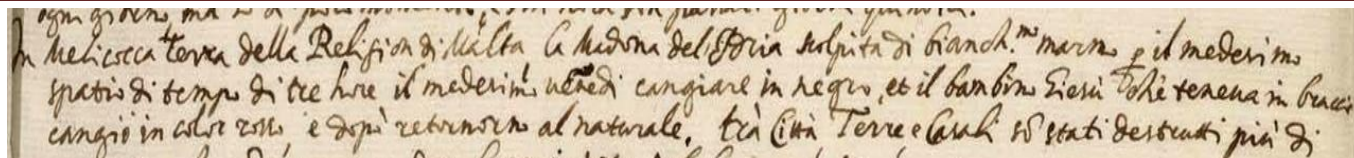 In Melicocca Terra della Religion di Malta, la Madona del Idria scolpita di bianch.mo marmo p il medesimo
spatio di tempo di tre hore il medesimo venedi cangiare in negro, et il bambino Giesù che teneva in braccio
cangiò in color rosso, e dopò retornorno al naturale. trà Città, Terre e Casali sõ stati destrutti più di